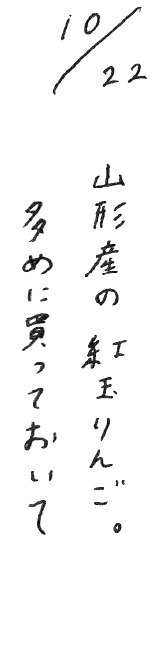 10/22
山形産の紅玉りんご。
多めに買っておいて